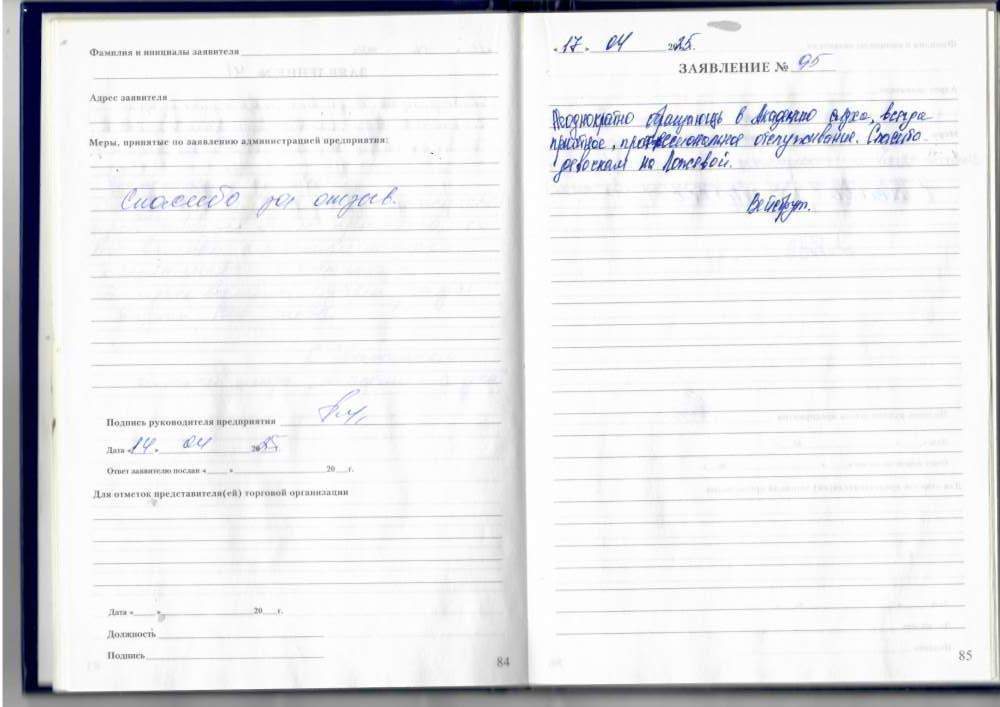 Фамилия и инициалы заявителя
Адрес заявителя
Меры, принятые по заявлению администрацией предприятия:
Спасибо за отзыв.
Подпись руководителя предприятия
Дата «14» 04 2025г.
Ответ заявителю послан « » 20 г.
Для отметок представителя(ей) торговой организации
Дата « » 20 г.
Должность
Подпись
84
«17» 04 2025г.
ЗАЯВЛЕНИЕ № 95
Неоднократно обращаюсь в Академию слуха, всегда
приятное, профессиональное обслуживание. Спасибо
девочкам на Ложевой.
85